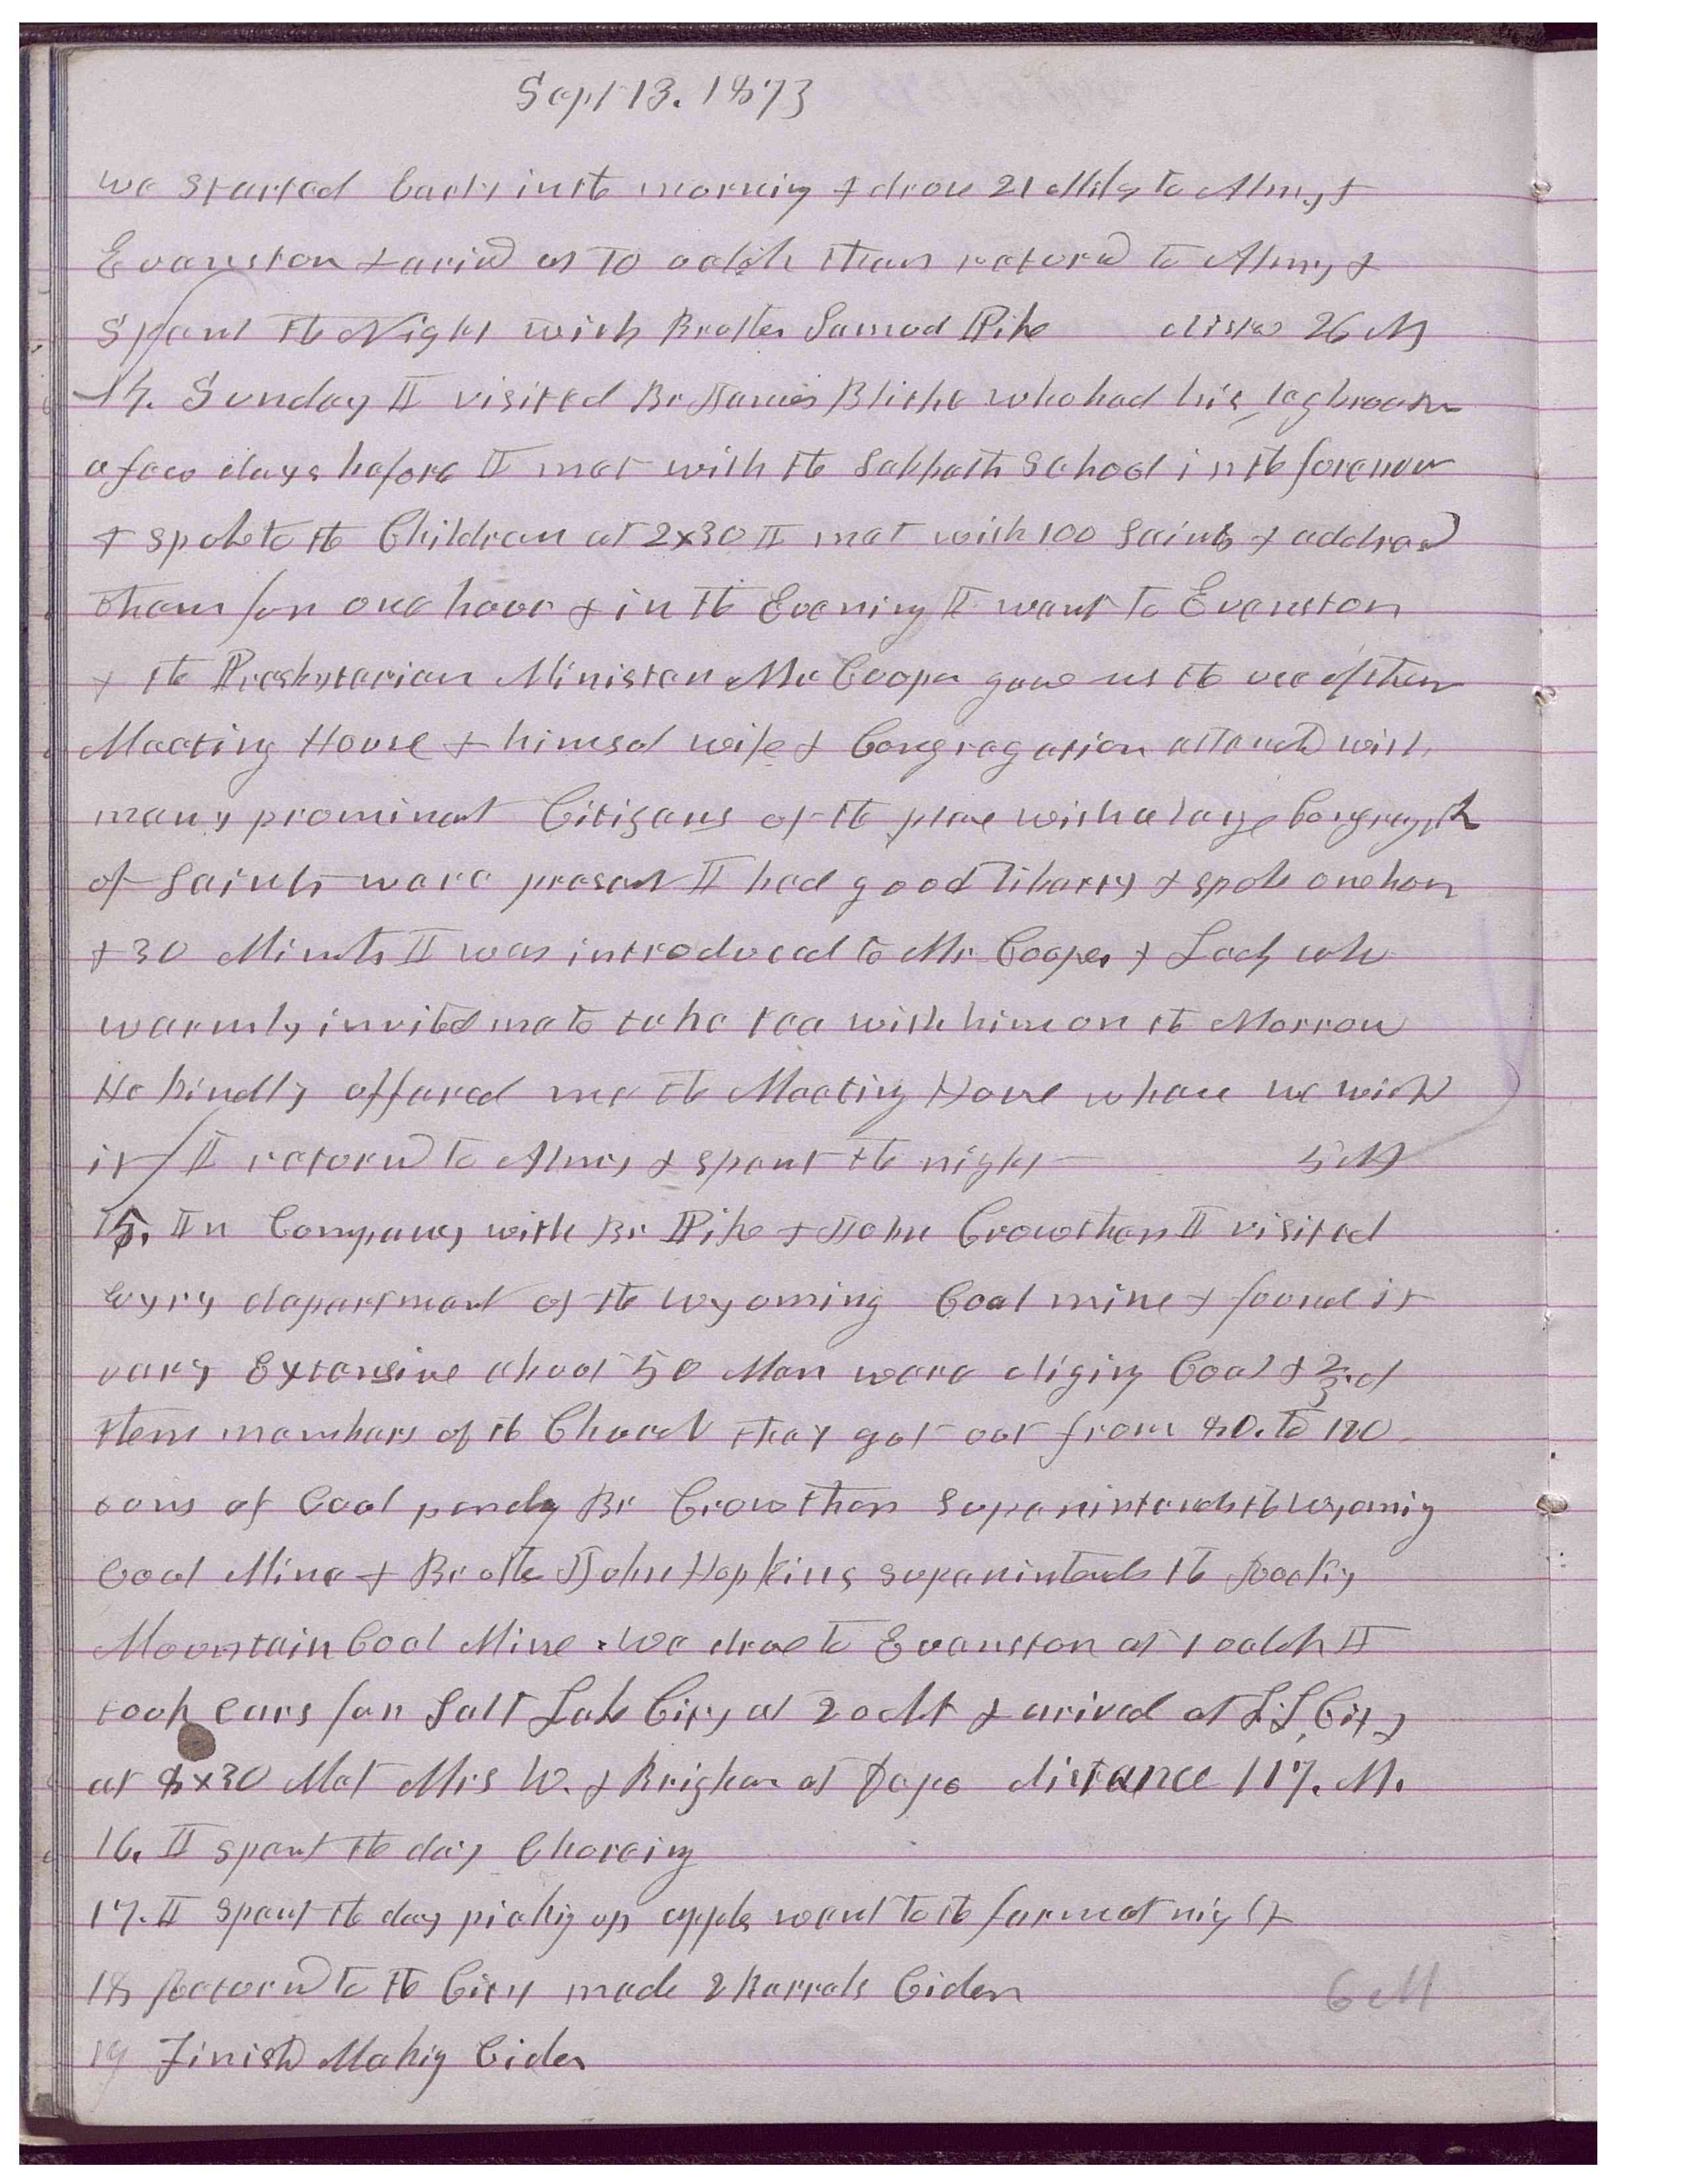 Sept 13. 1873
we started Early in the morning & drove 21 Miles to Almy &
Evanston & arived at 10 oclok then returnd to Almy &
Spent the Night with Brother Samuel Pike dista 26 M
14. Sunday I visited Br James Blithe who had his leg broaken
a few days before I met with the Sabbath School in the forenoon
& spoke to the Children at 2x30 I met with 100 Saints & addresd
them for one hour & in the Evening I went to Evanston
& the Presbyterian Minister Mr Cooper gave us the use of their
Meeting House & himself wife & Congregation attend with
many prominent Citizens of the place with a large Congregath
of Saints were present I had good liberty & spoke one hour
& 30 Minuts I was introduced to Mr Cooper & Lady who
warmly invited me to take tea with him on the Morrow
He kindly offered me the Meeting House when we wishd
it I returnd to Almy & spent the night 5 M
15. In Company with Br Pike & John Crowther I visited
evyry department of the Wyoming Coal mine & found it
very Extensive about 50 Men were diging Coal & 2/3 of
them members of the Church they got out from 80. to 120
tons of Coal per day Br Crowther Superintends the Wyomig
Coal Mine & Brother John Hopkins superintends the Rocky
Mountain Coal Mine. We drove to Evanston at 1 oclok I
took cars for Salt Lake City at 2 oclk & arived at S. L. City
at 8x30 Met Mrs W. & Brigham at Depo distance 117. M.
16. I spent the day Choreing
17. I spent the day pickig up apples went to the farm at night
18 Returnd to the City made 2 Barrels Cider 6 M
19 Finishd Makig Cider